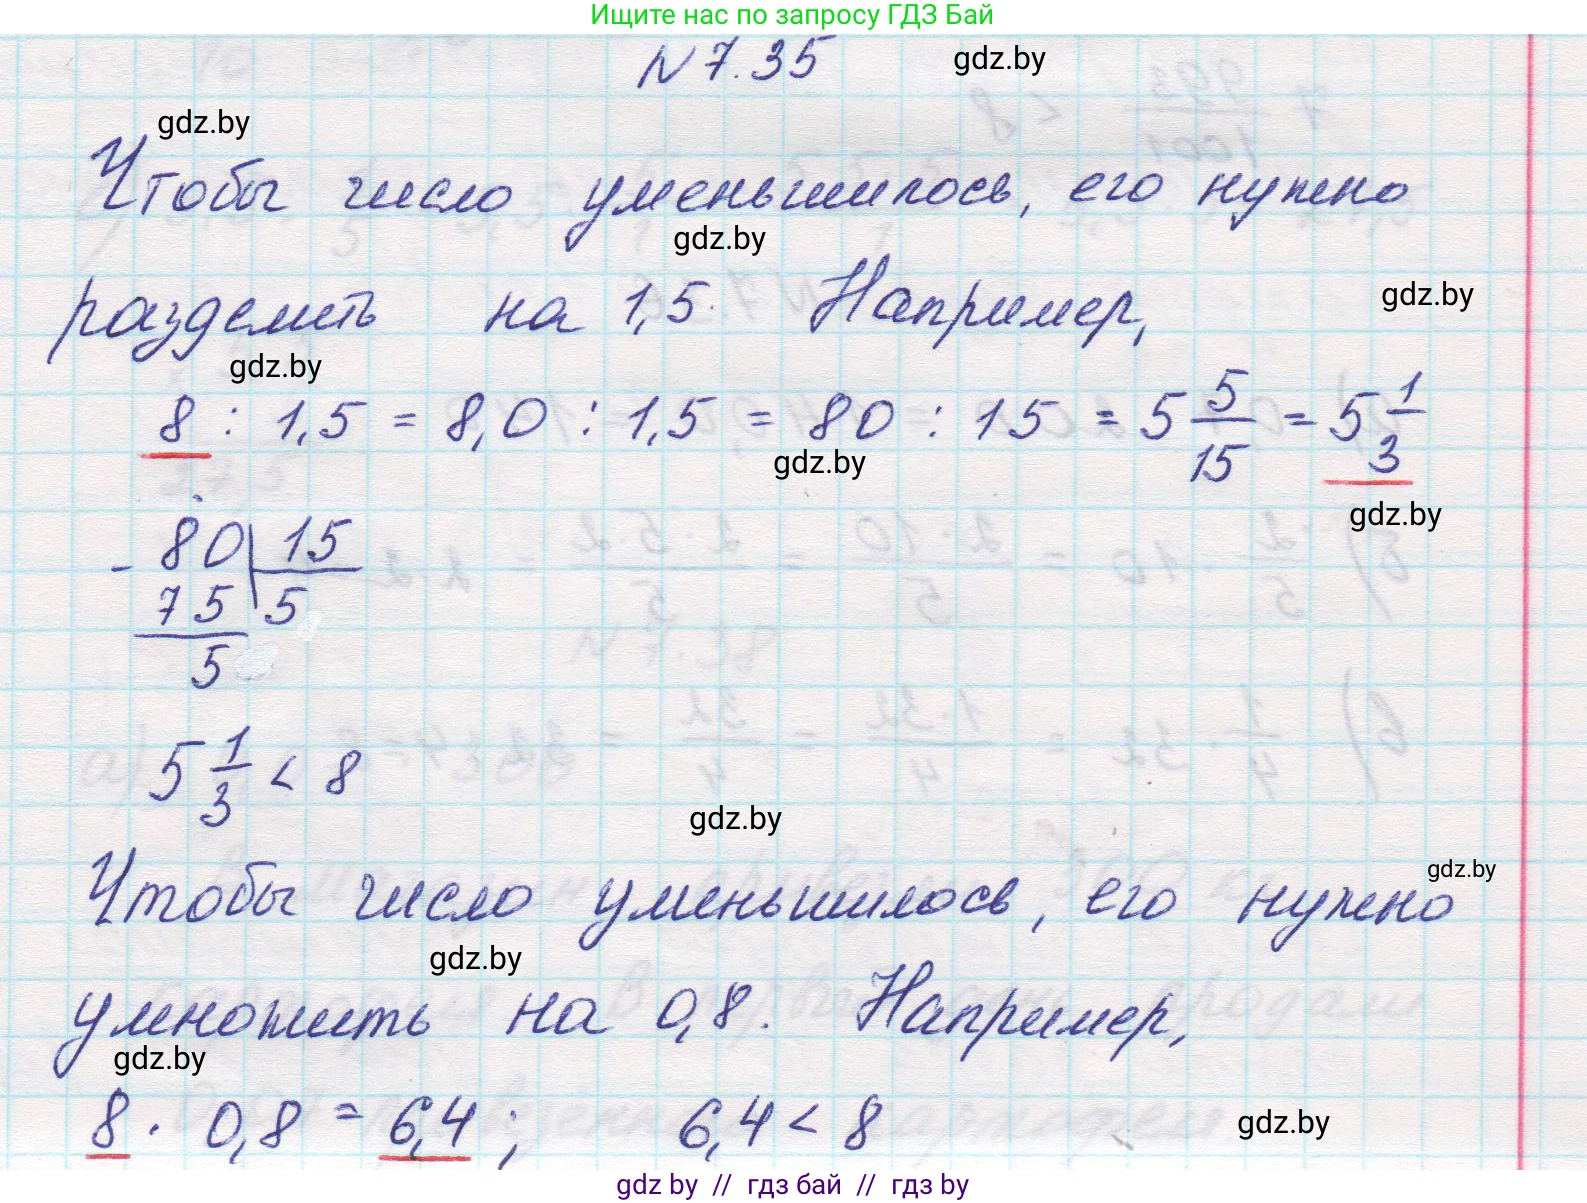 Ищите нас по запросу ГДЗ Бай
N 7.35
gdz.by
gdz.by
Чтобы число уменьшилось, его нужно
gdz.by
разделить на 1,5. Например,
gdz.by
gdz.by
8 : 1,5 = 8,0 : 1,5 = 80 : 15 = 5 5/15 = 5 1/3
gdz.by
gdz.by
- 80 | 15
75 | 5
5
5 1/3 < 8
gdz.by
gdz.by
Чтобы число уменьшилось, его нужно
gdz.by
умножить на 0,8. Например,
gdz.by
8 · 0,8 = 6,4 ; 6,4 < 8
gdz.by
gdz by // гдз бай // гдз by